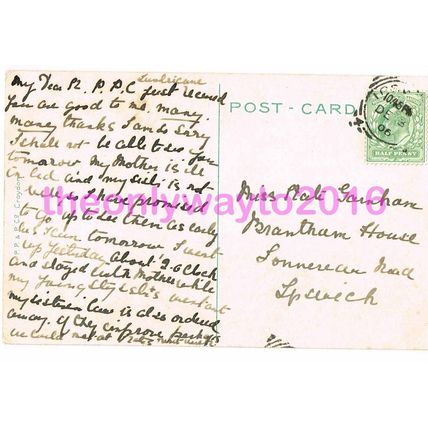 My Dear K. P.P.C just received
you are good to me. many.
many thanks I am so sorry
I shall not be able to see you
tomorrow My Mother is ill
in bed and my sister is not
well so I have promised
to go up to see them as early
as I can tomorrow I went
up yesterday About 2.0 Clock
and stayed with Mother while
my
my sister in law is also ordered
away. If they improve perhaps
we could meet at
POST-CARD
HALF PENNY
DE
06
Miss Kate Garnham
Brantham House
Sonnereau Road
Ipswich
P.P. & P. Co. Croydon
theonlywayto2016